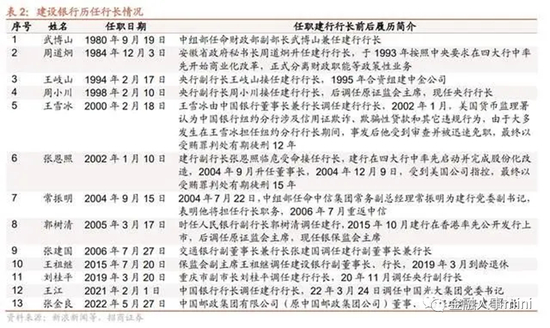 表 2：建设银行历任行长情况
序号 姓名 任职日期 任职建行行长前后履历简介
1 武博山 1980 年 9 月 19 日 中组部任命财政部副部长武博山兼任建行行长
2 周道炯 1984 年 12 月 3 日 安徽省政府秘书长周道炯升任建行行长，于 1993 年按照中央要求在四大行中率
先开始商业化改革，正式分离财政职能等政策性业务
3 王岐山 1994 年 2 月 17 日 央行副行长王岐山接任建行行长，1995 年合资组建中金公司
4 周小川 1998 年 2 月 10 日 央行副行长周小川接任建行行长，后调任原证监会主席，现任央行行长
5 王雪冰 2000 年 2 月 18 日 王雪冰由中国银行董事长兼行长调任建行行长，2002 年 1 月，美国货币监理署
认为中国银行纽约分行涉及信用证欺诈、欺骗性贷款和其它违规行为，由于大多
发生在王雪冰担任纽约分行行长期间，事发后他受到审查并被迅速免职，最终以
受贿罪判处有期徒刑 12 年
6 张恩照 2002 年 1 月 10 日 建行副行长张恩照临危受命接任行长，建行在四大行中率先启动并完成股份化改
造，2004 年 9 月升任董事长，2004 年 12 月 9 日，受到美国公司指控，最终以
受贿罪判处有期徒刑 15 年
7 常振明 2004 年 7 月 15 日 2004 年 7 月 22 日，中组部任命中信集团常务副总经理常振明为建行党委副书记，
表明他将担任行长职务，2006 年 7 月重返中信
8 郭树清 2005 年 3 月 17 日 时任人民银行副行长郭树清调任建行，2015 年 10 月建行在香港率先公开发行上
市，后调任原证监会主席，现任银保监会主席
9 张建国 2006 年 7 月 27 日 交通银行副董事长兼行长张建国调任建行副董事长兼行长
10 王祖继 2015 年 7 月 20 日 保监会副主席王祖继调任建设银行副董事长、行长，2019 年 3 月到龄退休
11 刘桂平 2019 年 3 月 20 日 重庆市副市长刘桂平调任建行行长，20 年 11 月调任央行副行长
12 王江 2021 年 2 月 1 日 中国银行行长王江调任建行行长，22 年 3 月 24 日调任中国光大集团党委书记
13 张金良 2022 年 5 月 27 日 中国邮政集团有限公司（原中国邮政集团公司）董事、
资料来源：新浪新闻等、招商证券
金融人事mini